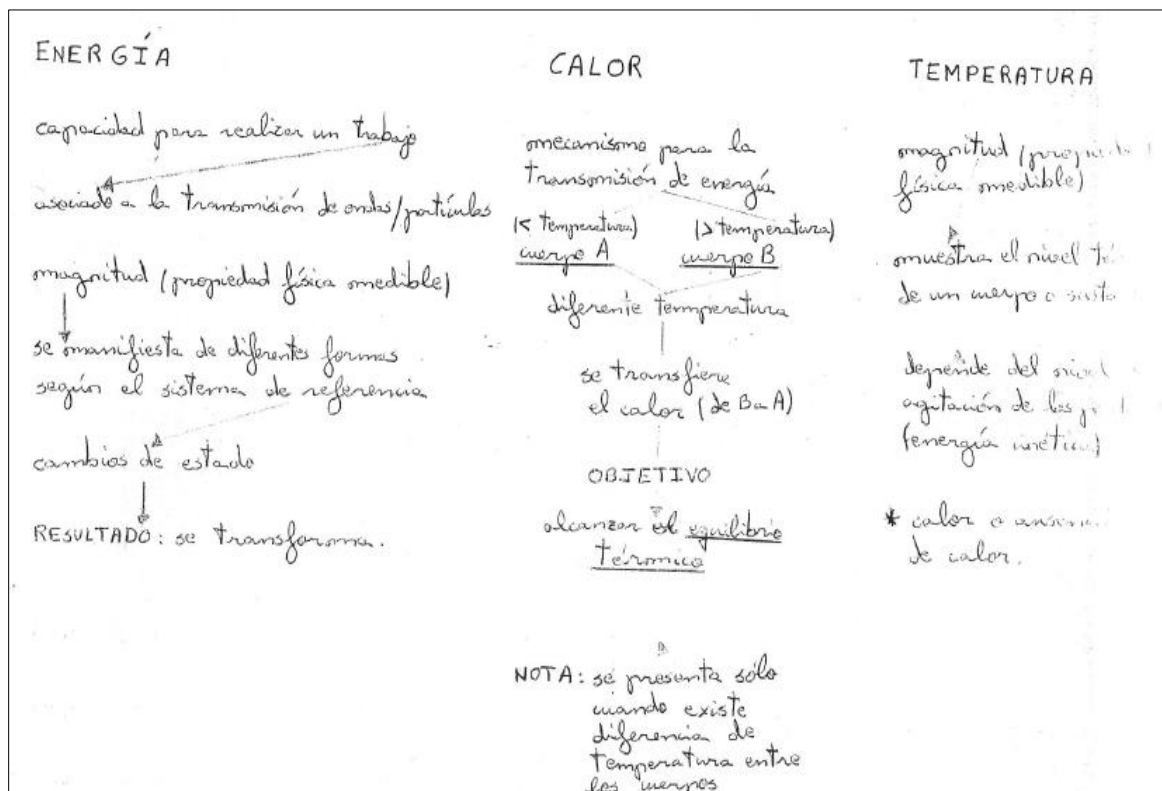 ENERGÍA
capacidad para realizar un trabajo
asociado a la transmisión de ondas/partículas
magnitud (propiedad física medible)
se manifiesta de diferentes formas
según el sistema de referencia
cambios de estado
RESULTADO: se transforma.
CALOR
mecanismo para la
transmisión de energía
(< temperatura)
cuerpo A
(> temperatura)
cuerpo B
diferente temperatura
se transfiere
el calor (de B a A)
OBJETIVO
alcanzar el equilibrio
térmico
NOTA: se presenta sólo
cuando existe
diferencia de
temperatura entre
los cuerpos
TEMPERATURA
magnitud
física medible)
muestra el nivel
de un cuerpo o
depende del nivel
agitación de las
(energía cinética)
* calor o
de calor.